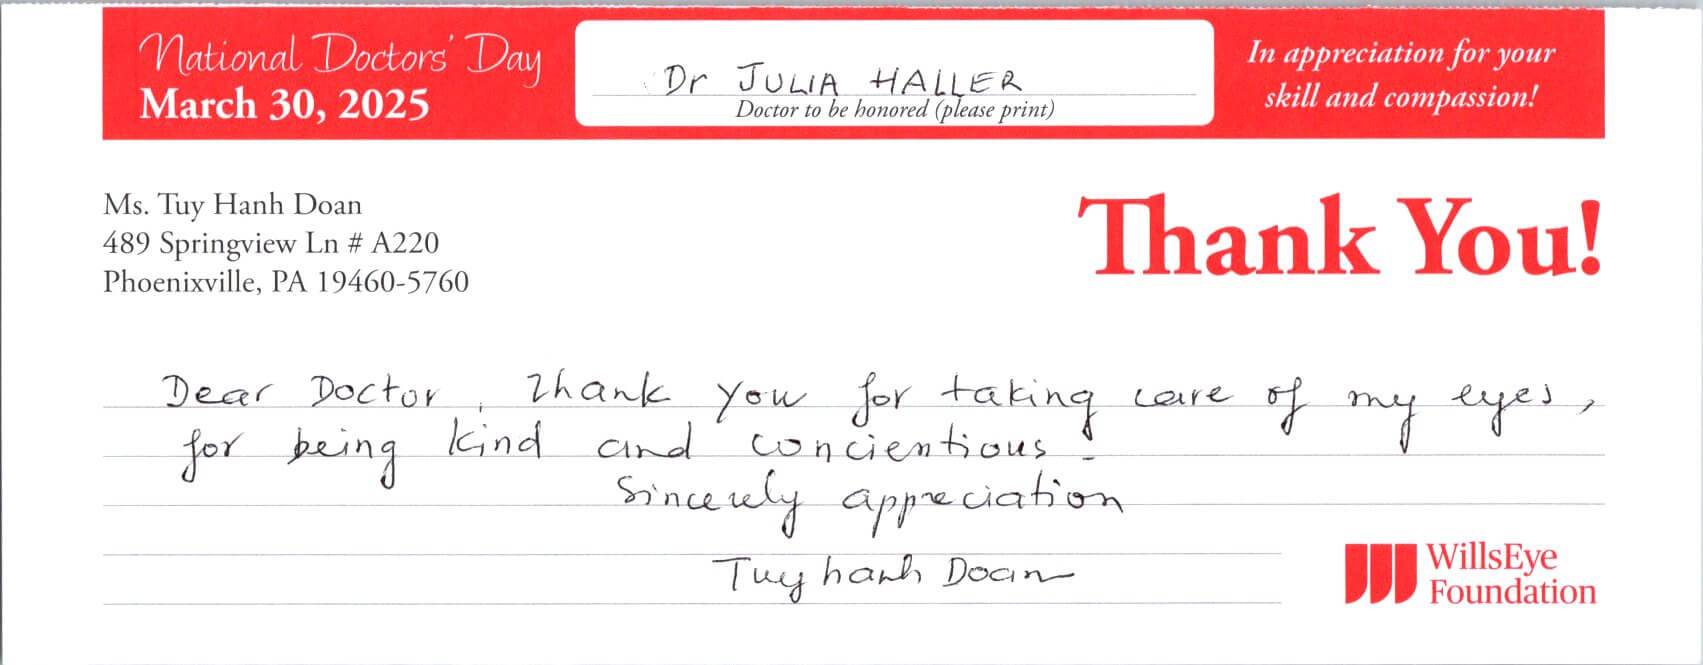 National Doctors' Day
March 30, 2025
Dr JULIA HALLER
Doctor to be honored (please print)
In appreciation for your
skill and compassion!
Ms. Tuy Hanh Doan
489 Springview Ln # A220
Phoenixville, PA 19460-5760
Thank You!
Dear Doctor, Thank you for taking care of my eyes,
for being kind and concientious.
Sincerely appreciation
Tuy hanh Doan
WillsEye
Foundation